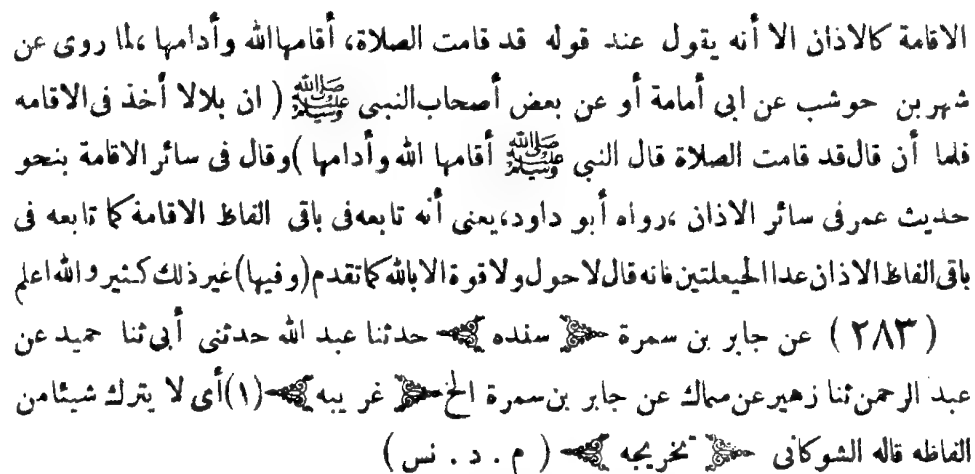 الاقامة كالاذان الا أنه يقول عند قوله قد قامت الصلاة، أقامها الله وأدامها ،لما روى عن
شهر بن حوشب عن ابى أمامة أو عن بعض أصحاب النبى ﷺ ( ان بلالا أخذ فى الاقامه
فلما أن قال قد قامت الصلاة قال النبي ﷺ أقامها الله وأدامها )وقال فى سائر الاقامة بنحو
حديث عمر فى سائر الاذان ،رواه أبو داود،يعنى أنه تابعه فى باقى الفاظ الاقامة كما تابعه فى
باقى الفاظ الاذان عدا الحيعلتين فانه قال لاحول ولا قوة الا بالله كما تقدم (وفيها) غير ذلك كثير والله اعلم
(٢٨٣) عن جابر بن سمرة سنده حدثنا عبد الله حدثنى أبى ثنا حميد عن
عبد الرحمن ثنا زهير عن سماك عن جابر بن سمرة الخ غريبه (١) أى لا يترك شيئا من
الفاظه قاله الشوكانى تخريجه ( م . د . نس )